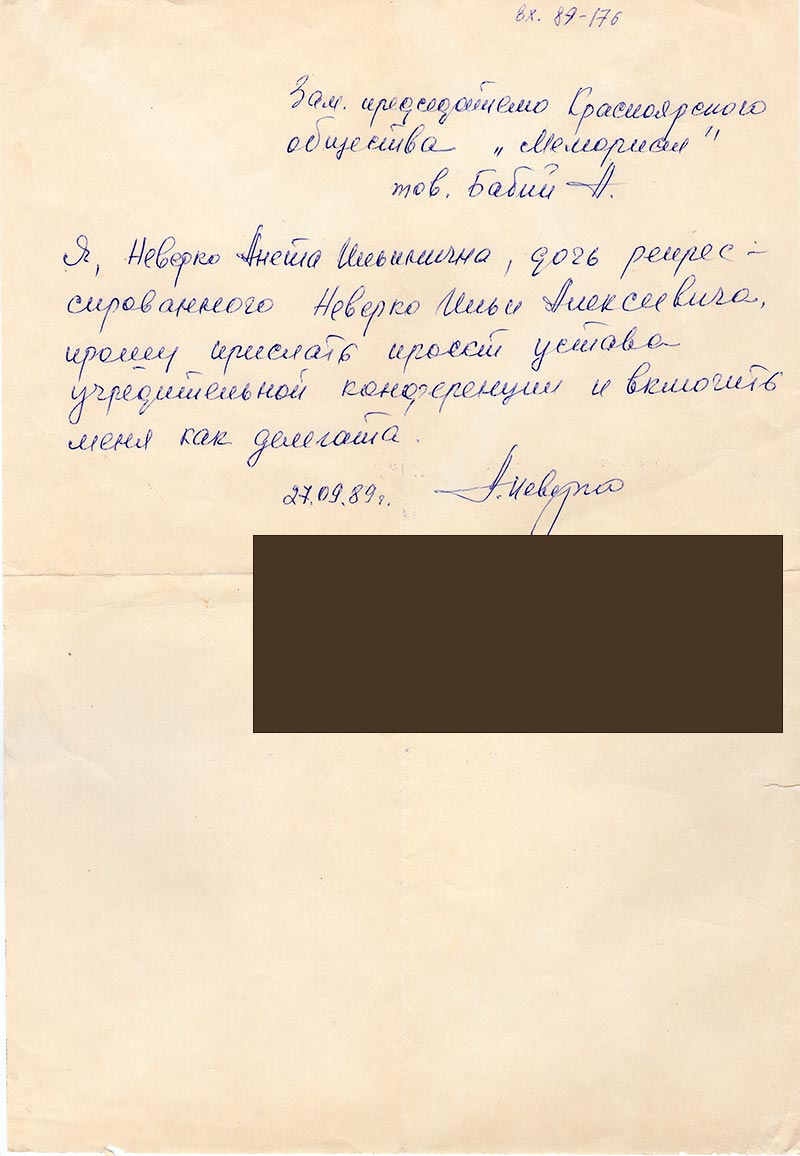 вх. 89-176
Зам. председателю Красноярского
общества „Мемориал"
тов. Бабий А.
Я, Неверко Анета Ильинична, дочь репрес-
сированного Неверко Ильи Алексеевича,
прошу прислать проект устава
учредительной конференции и включить
меня как делегата.
27.09.89г. А.Неверко